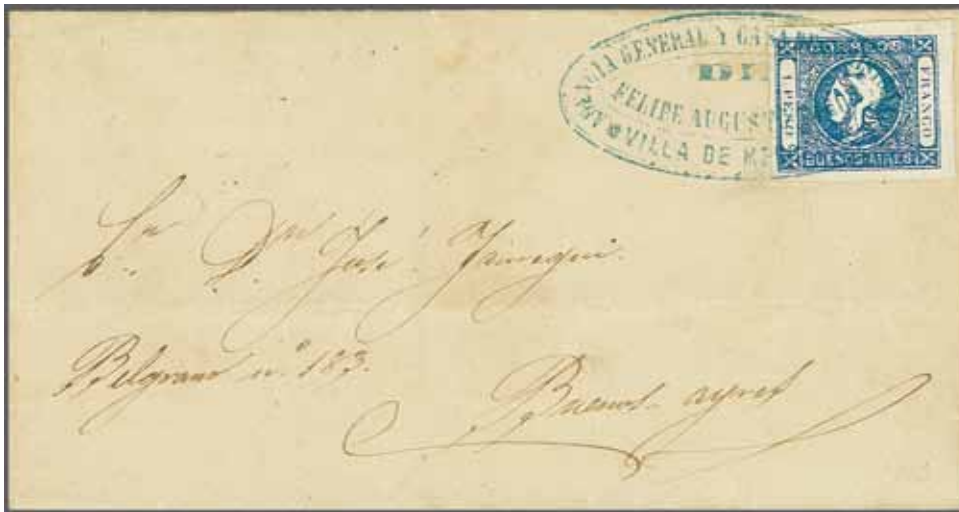 GENERAL Y
FELIPE AUGUST
VILLA DE
CORREOS
1 PESO
FRANCO
BUENOS AIRES
Sr. Dn. José
Belgrano n.º 183.
Buenos ayres